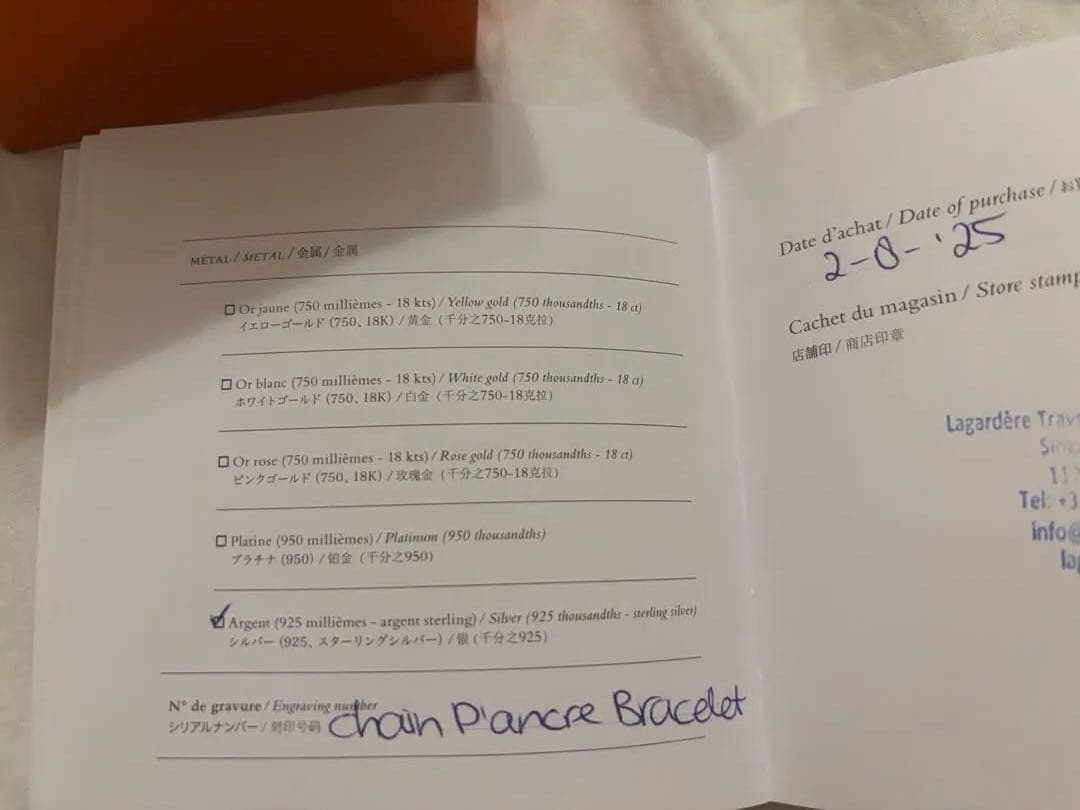 MÉTAL / METAL / 金属 / 金属
Or jaune (750 millièmes - 18 kts) / Yellow gold (750 thousandths - 18 ct)
イエローゴールド (750、18K) / 黄金 (千分之750-18克拉)
Or blanc (750 millièmes - 18 kts) / White gold (750 thousandths - 18 ct)
ホワイトゴールド (750、18K) / 白金 (千分之750-18克拉)
Or rose (750 millièmes - 18 kts) / Rose gold (750 thousandths - 18 ct)
ピンクゴールド (750、18K) / 玫瑰金 (千分之750-18克拉)
Platine (950 millièmes) / Platinum (950 thousandths)
プラチナ (950) / 铂金 (千分之950)
Argent (925 millièmes - argent sterling) / Silver (925 thousandths - sterling silver)
シルバー (925、スターリングシルバー) / 银 (千分之925)
N° de gravure / Engraving number
シリアルナンバー / 刻印号码 chain D'ancre Bracelet
Date d'achat / Date of purchase /
2-8-'25
Cachet du magasin / Store stamp
店舗印 / 商店印章
Lagardère Trav
11
Tel: +3
info@